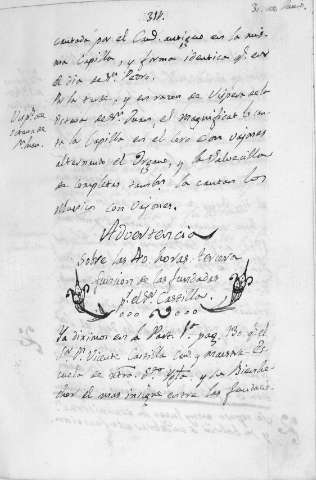 311.
cantada por el Cud. antiguo en la mis-
ma Capilla, y forma identica ql. en
dia de Sn. Pedro.
Por la tarde, y en razon de Vispera de la
Octava de Sn. Juan, el magnificat lo can-
ta la Capilla en el Coro con vajones
alternando el Organo, y la Salvecilla
de Completas tambn. la cantan los
Musicos con vajones.
Advertencia
Sobre las 40 horas, tercera
funcion de las fundadas
pr. el Sr. Castilla.
Ya diximos en la Part. 1a. pag. 130. q. el
Sr. Dn. Vicente Castilla Cud. y Maestre Es-
cuela de ntra. Sta. Ygla. y su Bienhe-
chor el mas insigne entre las fundacio-